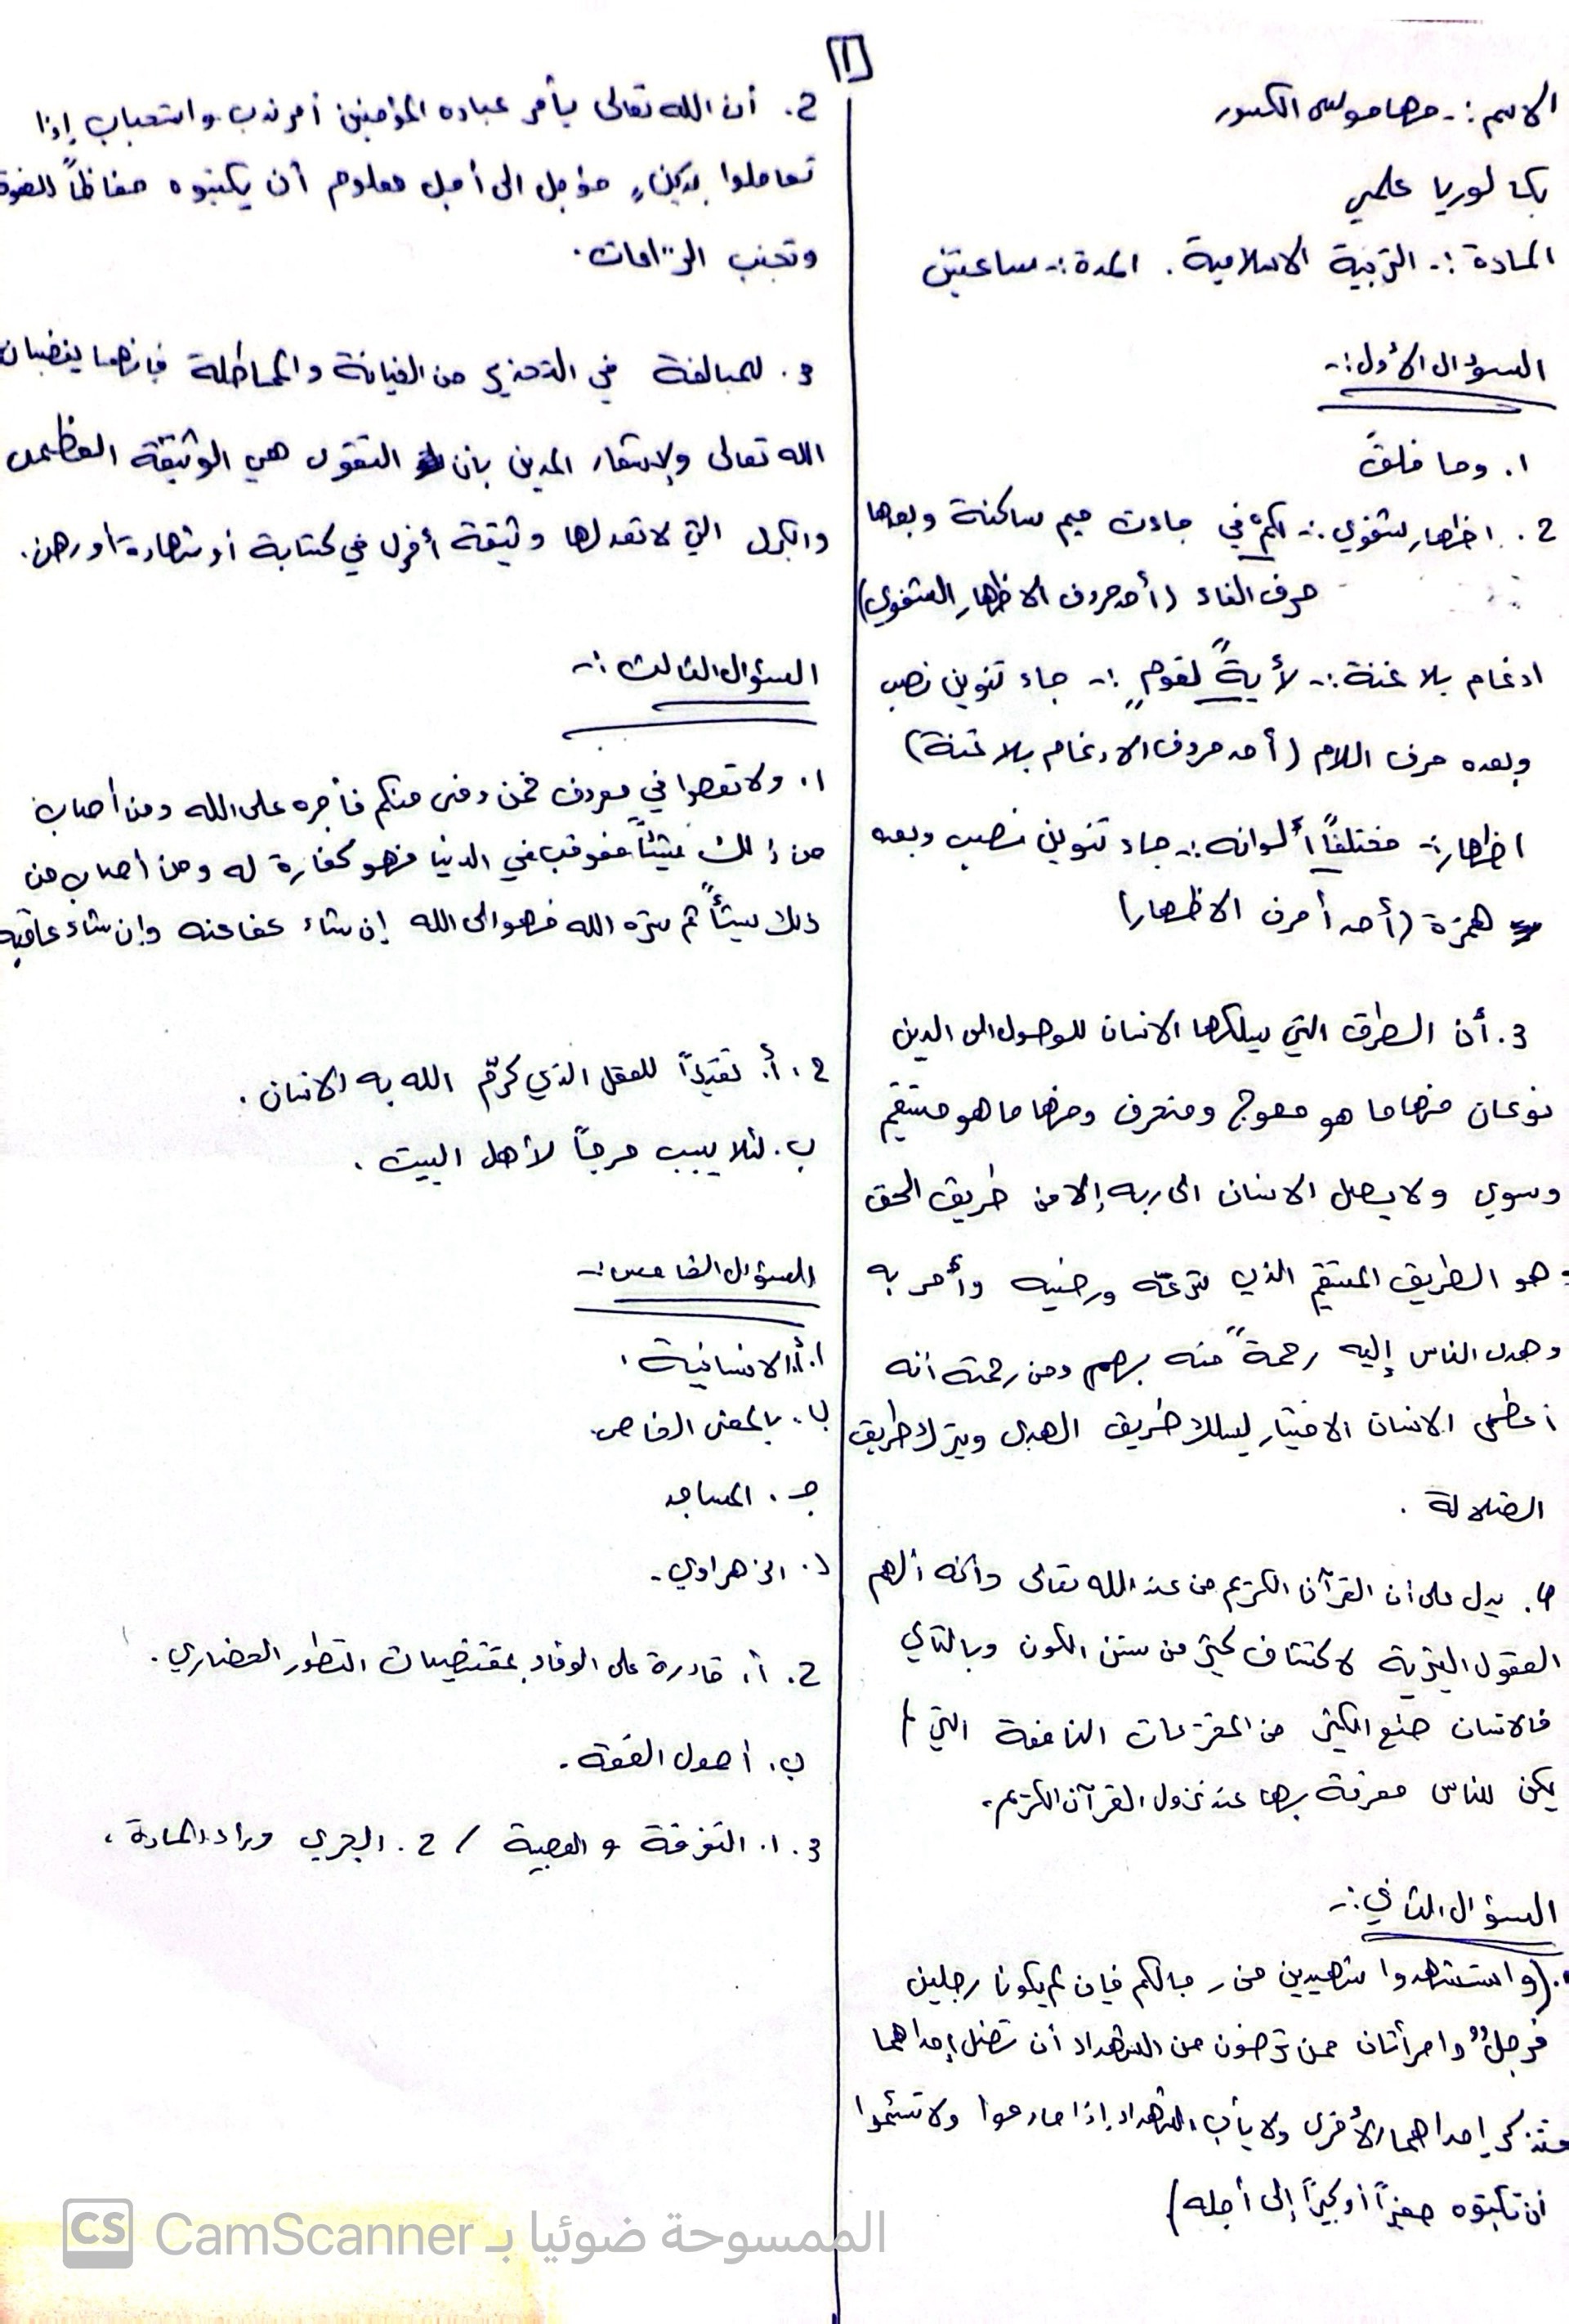 [1]
الاسم :- مها موسى الكسور
بكالوريا علمي
المادة :- التربية الاسلامية . المدة :- ساعتين
السؤال الأول :-
1. وما خلقَ
2. اظهار شفوي :- لكمْ في جاءت ميم ساكنة وبعدها
حرف الفاء (أحد حروف الاظهار الشفوي)
ادغام بلا غنة :- لأيةً لقومٍ :- جاء تنوين نصب
وبعده حرف اللام (أحد حروف الادغام بلا غنة)
اظهار :- مختلفاً ألوانه :- جاء تنوين نصب وبعد
همزة (أحد أحرف الاظهار)
3. أن الطرق التي يسلكها الانسان للوصول الى الدين
نوعان منها ما هو معوج ومنحرف ومنها ما هو مستقيم
وسوي ولا يصل الانسان الى ربه إلا من طريق الحق
وهو الطريق المستقيم الذي شرعّه ورضيه وأمر به
وهدى الناس إليه رحمةً منه بهم ومن رحمته انه
أعطى الانسان الاختيار ليسلك طريق الهدى ويترك طريق
الضلالة .
4. يدل على أن القرآن الكريم من عند الله تعالى وأنه ألهم
العقول البشرية لاكتشاف كثير من سنن الكون وبالتالي
فالانسان صنع الكثير من المخترعات النافعة التي لم
يكن للناس معرفة بها عند نزول القرآن الكريم.
السؤال الثاني :-
1. (واستشهدوا شهيدين من رجالكم فإن لم يكونا رجلين
فرجلٌ وامرأتان ممن ترضون من الشهداء أن تضل إحداهما
فتذكر إحداهما الأخرى ولا يأب الشهداء إذا ما دعوا ولا تسئموا
أن تكتبوه صغيراً أو كبيراً إلى أجله)
2. أن الله تعالى يأمر عباده المؤمنين أمر ندب واستحباب إذا
تعاملوا بدينٍ مؤجل الى أجل معلوم أن يكتبوه حفاظاً
وتجنب النزاعات .
3. للمبالغة في التحذير من الخيانة والمماطلة فإنهما يغضبان
الله تعالى ولإشعار المدين بأن التقوى هي الوثيقة العظمى
والكبرى التي لا تعدلها وثيقة أخرى في كتابة أو شهادة أو رهن.
السؤال الثالث :-
1. ولا تعصوا في معروف فمن وفى منكم فأجره على الله ومن أصاب
من ذلك شيئاً فعوقب في الدنيا فهو كفارة له ومن أصاب من
ذلك شيئاً ثم ستره الله فهو الى الله إن شاء عفا عنه وإن شاء عاقبه
2. أ. تقديراً للعقل الذي كرّم الله به الانسان .
ب. لئلا يسبب حرجاً لأهل البيت .
السؤال الخامس :-
1. أ. الانسانية .
ب. بالمعنى الخاص.
جـ . المساجد
د. الزهراوي .
2. أ. قادرة على الوفاء بمقتضيات التطور الحضاري .
ب. أصول الفقة .
3. 1. التفرقة والعصبية / 2. الجري وراء المادة .
الممسوحة ضوئيا بـ CamScanner
CS